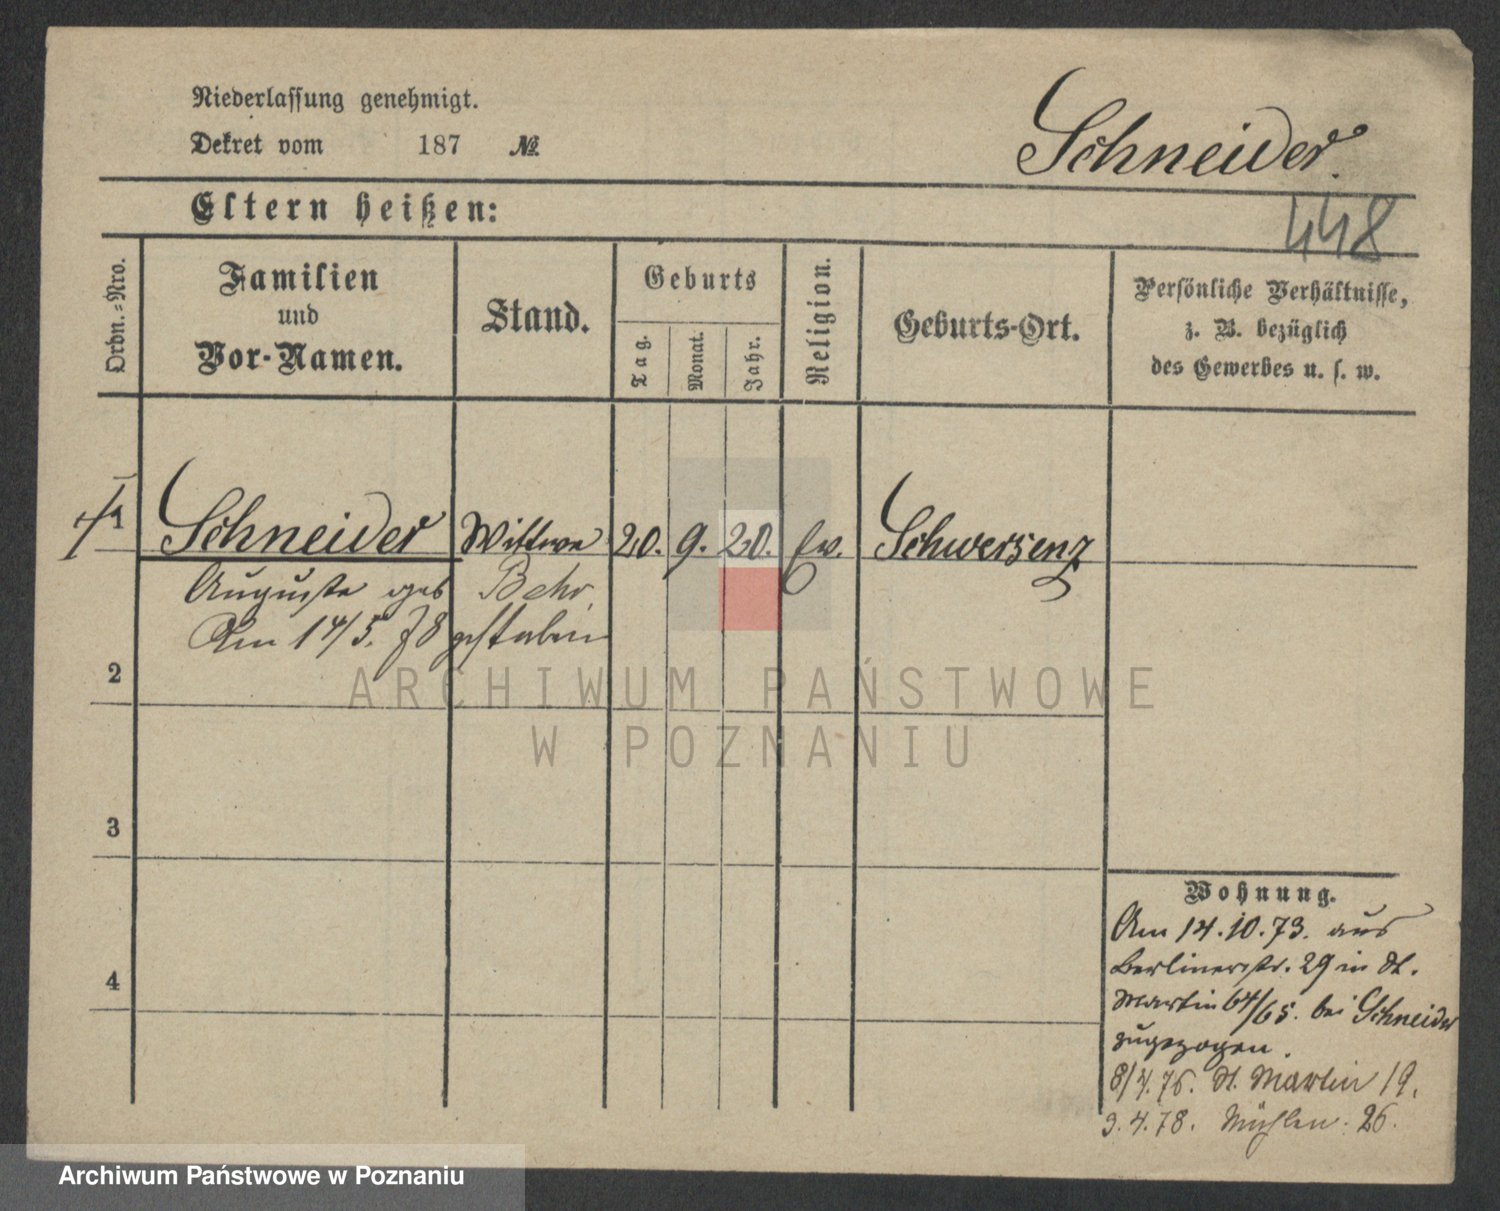 Niederlassung genehmigt.
Dekret vom 187 №
Schneider.
Eltern heißen:
448
Ordn.-Nro.
Familien
und
Vor-Namen.
Stand.
Geburts
Tag.
Monat.
Jahr.
Religion.
Geburts-Ort.
Persönliche Verhältnisse,
z. B. bezüglich
des Gewerbes u. s. w.
1 Schneider Wittwe 20. 9. 20. ev. Schwersenz
Auguste geb Behr
Am 14/5. 78 gestorben
2
ARCHIWUM PAŃSTWOWE
W POZNANIU
3
4
Wohnung.
Am 14.10.73. aus
Berlinerstr. 29 in St.
Martin 64/65. bei Schneider
zugezogen.
8/4.76. St. Martin 19.
3.4.78. Mühlen. 26.
Archiwum Państwowe w Poznaniu